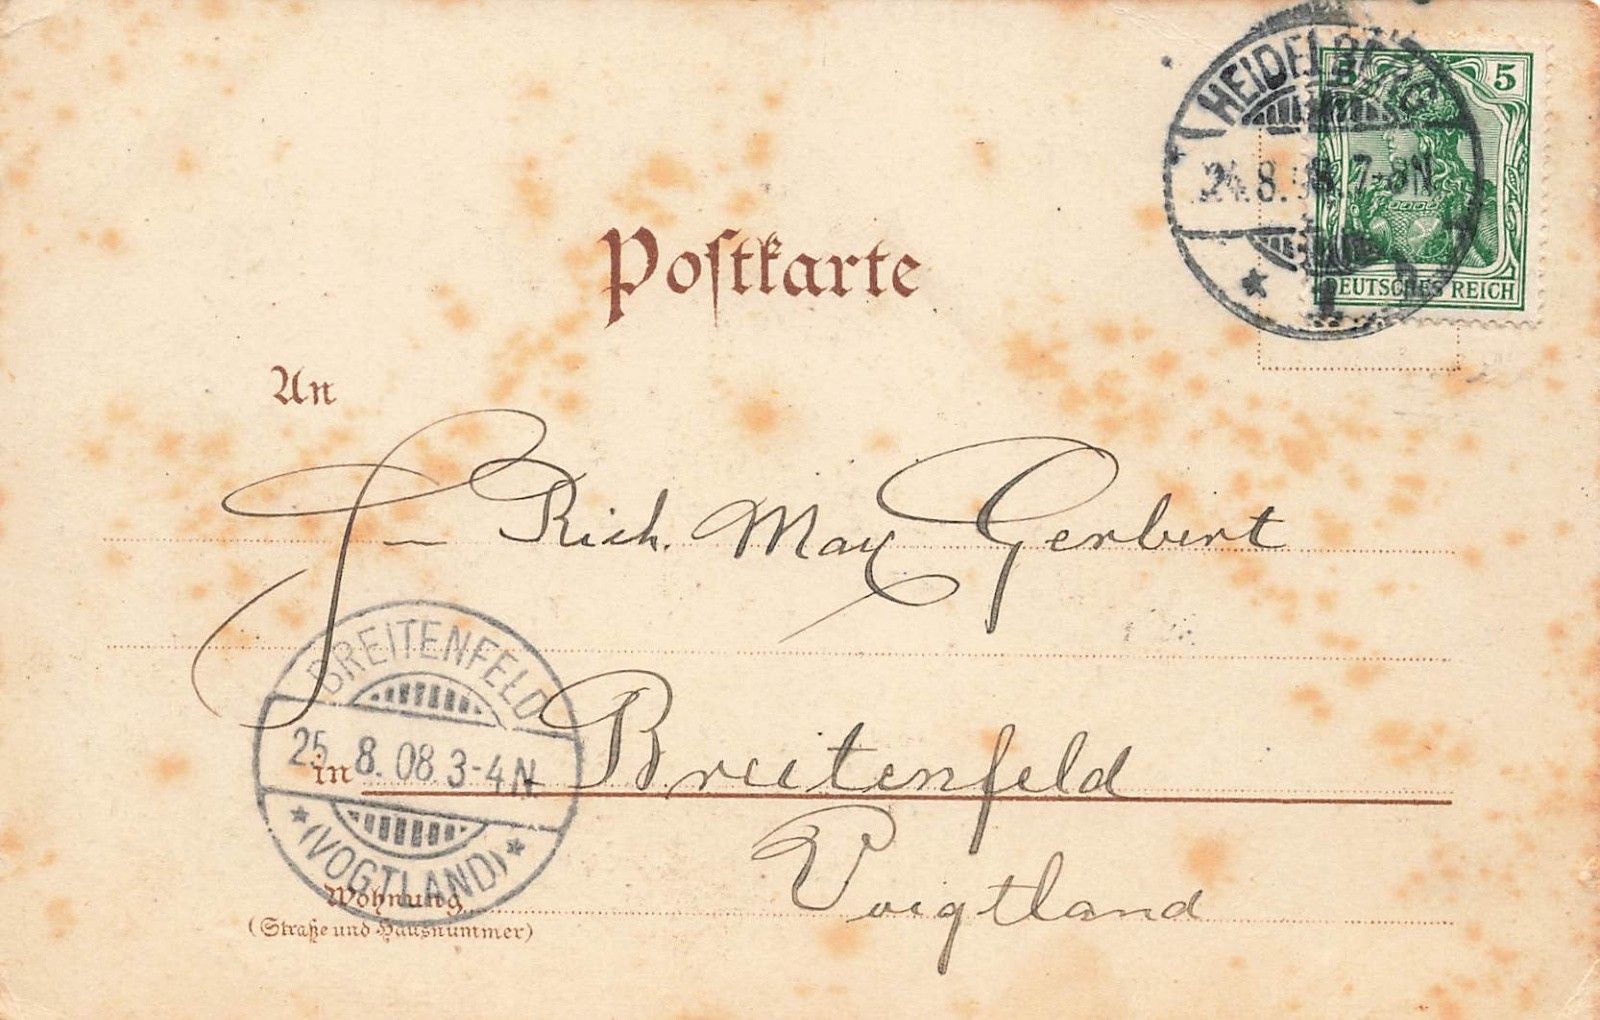 HEIDELBERG
24.8.08.7-8N
5 5
DEUTSCHES REICH
Postkarte
An
Rich. Max Gerbert
BREITENFELD
25.8.08.3-4N.
(VOGTLAND)
in Breitenfeld
Voigtland
Wohnung
(Straße und Hausnummer)